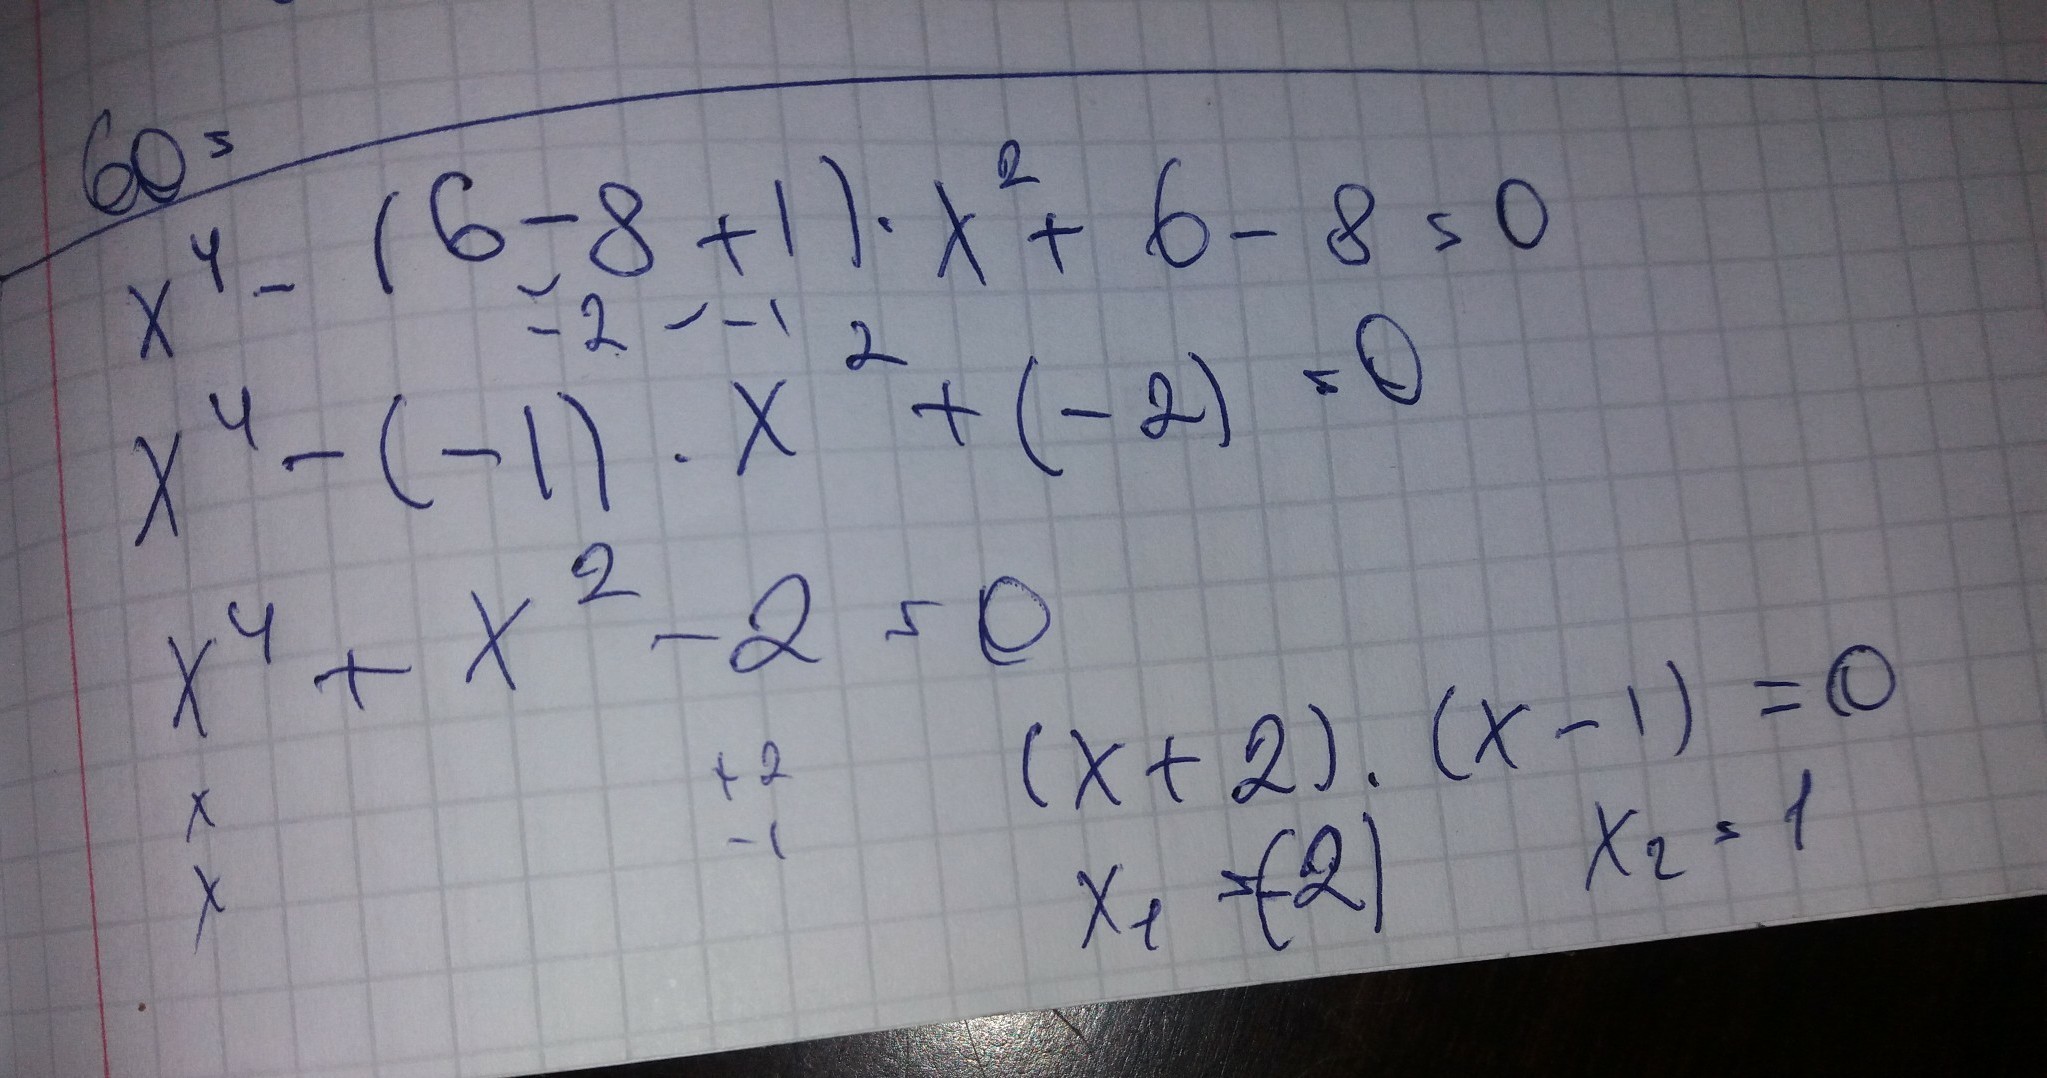 60 =
x⁴ - (6 - 8 + 1) · x² + 6 - 8 = 0
-2 -1
x⁴ - (-1) · x² + (-2) = 0
x⁴ + x² - 2 = 0
x +2 (x + 2) · (x - 1) = 0
x -1 x₁ = (-2) x₂ = 1